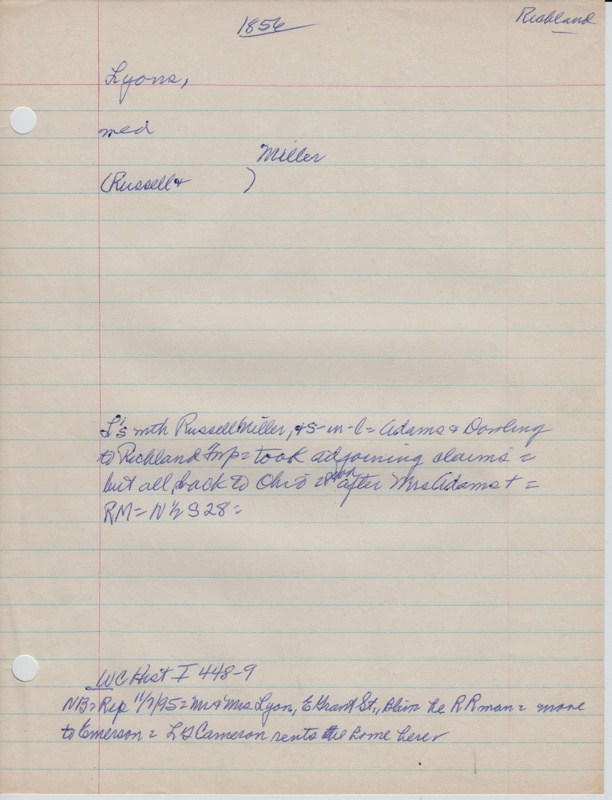 1856
Richland
Lyons,
med
Miller
(Russell + )
L's mth Russell Miller, + S-in-l = Adams & Dowling
to Richland Twp = took adjoining claims =
but all back to Ohio = soon after Mrs Adams + =
RM = N ½ S 28 =
WC Hist I 448-9
NB = Rep 11/7/95 = Mr & Mrs Lyon, E Grant St,, he R R man = move
to Emerson = L G Cameron rents the home here